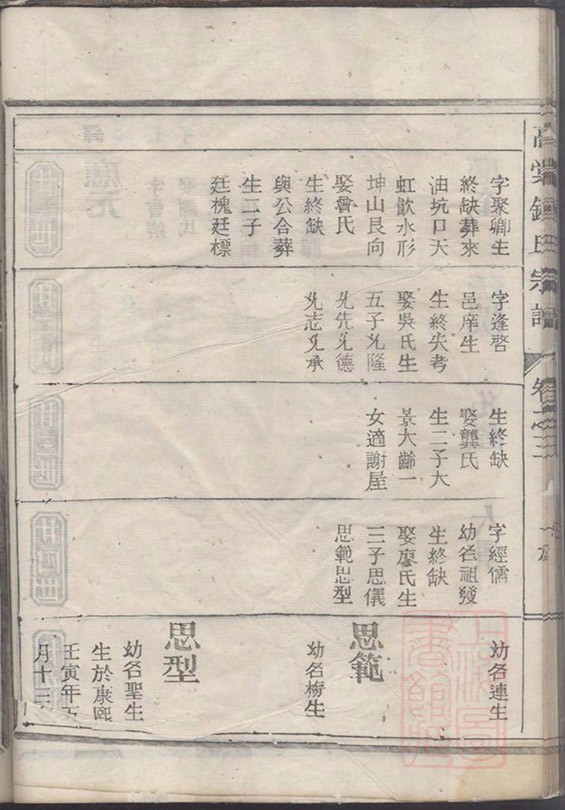 字聚卿生
終缺葬來
油坑口天
虹飲水形
坤山艮向
娶曾氏
生終缺
與公合葬
生二子
廷槐廷標
字逢啓
邑庠生
生終失考
娶吳氏生
五子兊隆
兊先兊德
兊志兊承
生終缺
娶龔氏
生二子大
景大齡一
女適謝屋
字經儒
幼名祖發
生終缺
娶廖氏生
三子思儀
思範思型
幼名連生
思範
幼名榜生
思型
幼名聖生
生於康熙
壬寅年五
月十三
氏宗譜
卷